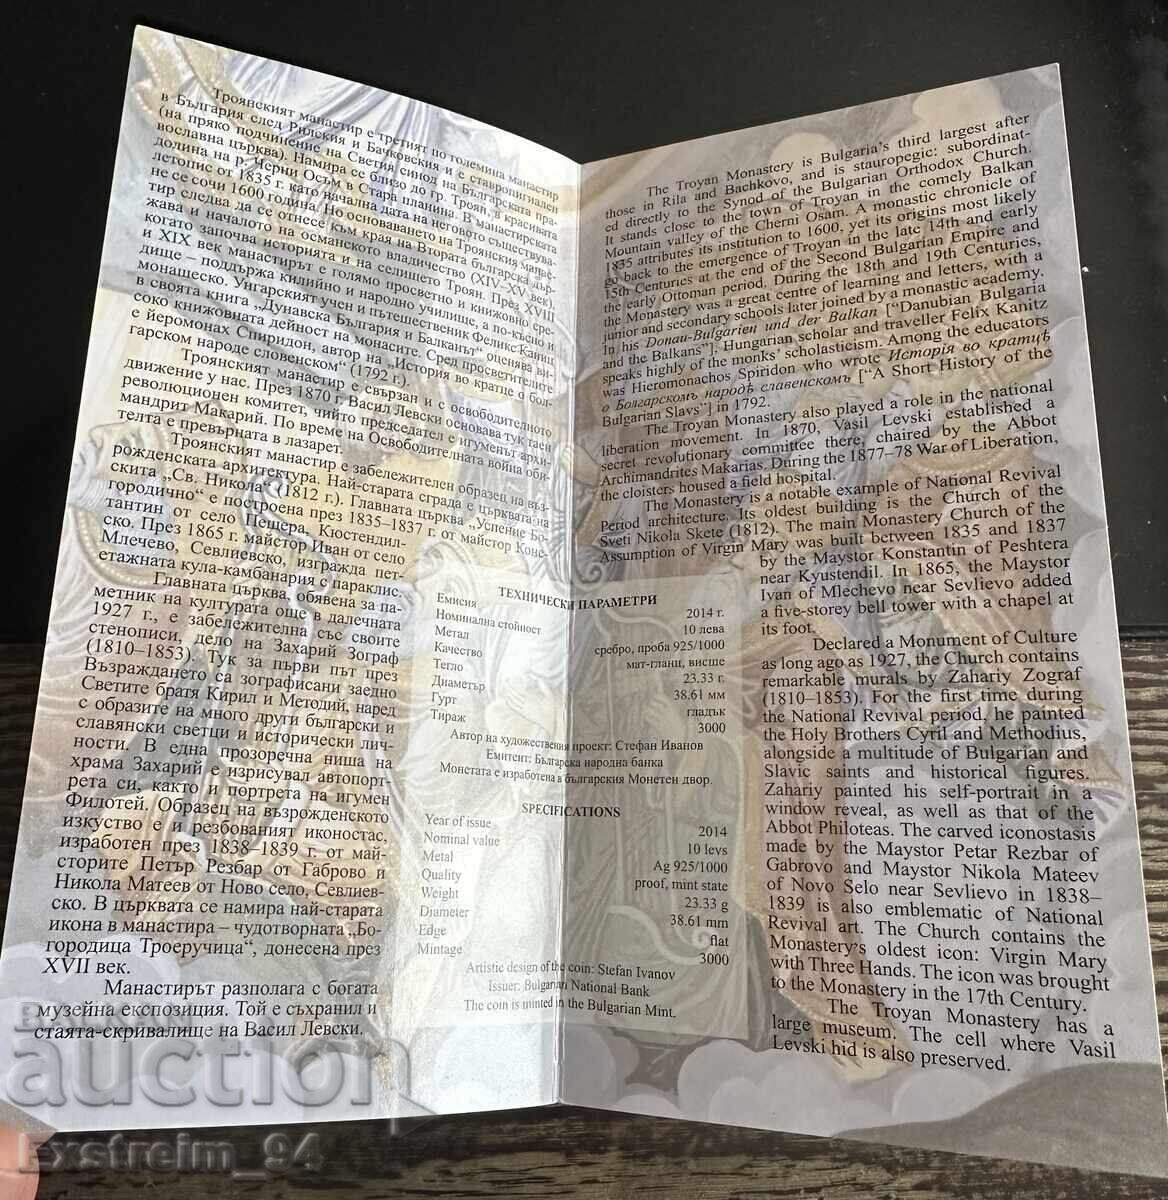 Троянският манастир е третият по големина манастир
в България след Рилския и Бачковския и е ставропигиален
(на пряко подчинение на Светия синод на Българската пра-
вославна църква). Намира се близо до гр. Троян, в красивата
долина на р. Черни Осъм в Стара планина. В манастирската
летопис от 1835 г. като начална дата на неговото съществува-
не се сочи 1600 година. Но основаването на Троянския манас-
тир следва да се отнесе към края на Втората българска дър-
жава и началото на османското владичество (XIV–XV век),
когато започва историята и на селището Троян. През XVIII
и XIX век манастирът е голямо просветно и книжовно сре-
дище – поддържа килийно и народно училище, а по-късно и
монашеско. Унгарският учен и пътешественик Феликс Каниц
в своята книга „Дунавска България и Балканът“ оценява ви-
соко книжовната дейност на монасите. Сред просветителите
е йеромонах Спиридон, автор на „История во кратце о бол-
гарском народе словенском“ (1792 г.).
Троянският манастир е свързан и с освободителното
движение у нас. През 1870 г. Васил Левски основава тук таен
революционен комитет, чийто председател е игуменът архи-
мандрит Макарий. По време на Освободителната война оби-
телта е превърната в лазарет.
Троянският манастир е забележителен образец на въз-
рожденската архитектура. Най-старата сграда е църквата на
скита „Св. Никола“ (1812 г.). Главната църква „Успение Бо-
городично“ е построена през 1835–1837 г. от майстор Конс-
тантин от село Пещера, Кюстендил-
ско. През 1865 г. майстор Иван от село
Млечево, Севлиевско, изгражда пет-
етажната кула-камбанария с параклис.
Главната църква, обявена за па-
метник на културата още в далечната
1927 г., е забележителна със своите
стенописи, дело на Захарий Зограф
(1810–1853). Тук за първи път през
Възраждането са зографисани заедно
Светите братя Кирил и Методий, наред
с образите на много други български и
славянски светци и исторически лич-
ности. В една прозоречна ниша на
храма Захарий е изрисувал автопорт-
рета си, както и портрета на игумен
Филотей. Образец на възрожденското
изкуство е и резбованият иконостас,
изработен през 1838–1839 г. от май-
сторите Петър Резбар от Габрово и
Никола Матеев от Ново село, Севлиев-
ско. В църквата се намира най-старата
икона в манастира – чудотворната „Бо-
городица Троеручица“, донесена през
XVII век.
Манастирът разполага с богата
музейна експозиция. Той е съхранил и
стаята-скривалище на Васил Левски.
ТЕХНИЧЕСКИ ПАРАМЕТРИ
Емисия 2014 г.
Номинална стойност 10 лева
Метал сребро, проба 925/1000
Качество мат-гланц, висше
Тегло 23.33 г.
Диаметър 38.61 мм
Гурт гладък
Тираж 3000
Автор на художествения проект: Стефан Иванов
Емитент: Българска народна банка
Монетата е изработена в българския Монетен двор.
SPECIFICATIONS
Year of issue 2014
Nominal value 10 levs
Metal Ag 925/1000
Quality proof, mint state
Weight 23.33 g
Diameter 38.61 mm
Edge flat
Mintage 3000
Artistic design of the coin: Stefan Ivanov
Issuer: Bulgarian National Bank
The coin is minted in the Bulgarian Mint.
The Troyan Monastery is Bulgaria's third largest after
those in Rila and Bachkovo, and is stauropegic: subordinat-
ed directly to the Synod of the Bulgarian Orthodox Church.
It stands close to the town of Troyan in the comely Balkan
Mountain valley of the Cherni Osam. A monastic chronicle of
1835 attributes its institution to 1600, yet its origins most likely
go back to the emergence of Troyan in the late 14th and early
15th Centuries at the end of the Second Bulgarian Empire and
the early Ottoman period. During the 18th and 19th Centuries,
the Monastery was a great centre of learning and letters, with a
junior and secondary schools later joined by a monastic academy.
In his Donau-Bulgarien und der Balkan ["Danubian Bulgaria
and the Balkans"], Hungarian scholar and traveller Felix Kanitz
speaks highly of the monks' scholasticism. Among the educators
was Hieromonachos Spiridon who wrote Исторія во кратцѣ
о Болгарскомъ народѣ славенскомъ ["A Short History of the
Bulgarian Slavs"] in 1792.
The Troyan Monastery also played a role in the national
liberation movement. In 1870, Vasil Levski established a
secret revolutionary committee there, chaired by the Abbot
Archimandrites Makarias. During the 1877–78 War of Liberation,
the cloisters housed a field hospital.
The Monastery is a notable example of National Revival
Period architecture. Its oldest building is the Church of the
Sveti Nikola Skete (1812). The main Monastery Church of the
Assumption of Virgin Mary was built between 1835 and 1837
by the Maystor Konstantin of Peshtera
near Kyustendil. In 1865, the Maystor
Ivan of Mlechevo near Sevlievo added
a five-storey bell tower with a chapel at
its foot.
Declared a Monument of Culture
as long ago as 1927, the Church contains
remarkable murals by Zahariy Zograf
(1810–1853). For the first time during
the National Revival period, he painted
the Holy Brothers Cyril and Methodius,
alongside a multitude of Bulgarian and
Slavic saints and historical figures.
Zahariy painted his self-portrait in a
window reveal, as well as that of the
Abbot Philoteas. The carved iconostasis
made by the Maystor Petar Rezbar of
Gabrovo and Maystor Nikola Mateev
of Novo Selo near Sevlievo in 1838–
1839 is also emblematic of National
Revival art. The Church contains the
Monastery's oldest icon: Virgin Mary
with Three Hands. The icon was brought
to the Monastery in the 17th Century.
The Troyan Monastery has a
large museum. The cell where Vasil
Levski hid is also preserved.
auction
Exstreim_94